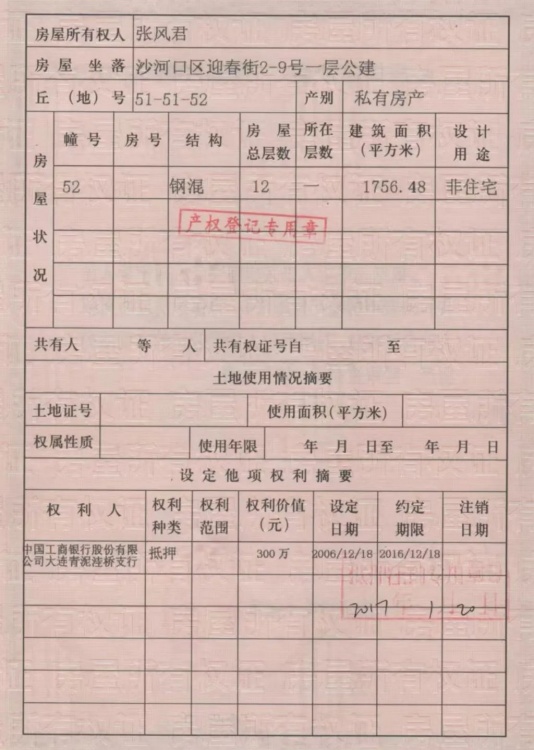 房屋所有权人 张风君
房屋坐落 沙河口区迎春街2-9号一层公建
丘（地）号 51-51-52 产别 私有房产
房屋状况
幢号 房号 结构 房屋总层数 所在层数 建筑面积（平方米） 设计用途
52 钢混 12 一 1756.48 非住宅
产权登记专用章
共有人 等 人 共有权证号自 至
土地使用情况摘要
土地证号 使用面积(平方米)
权属性质 使用年限 年 月 日至 年 月 日
设定他项权利摘要
权利人 权利种类 权利范围 权利价值（元） 设定日期 约定期限 注销日期
中国工商银行股份有限
公司大连青泥洼桥支行 抵押 300 万 2006/12/18 2016/12/18
2017 1 20